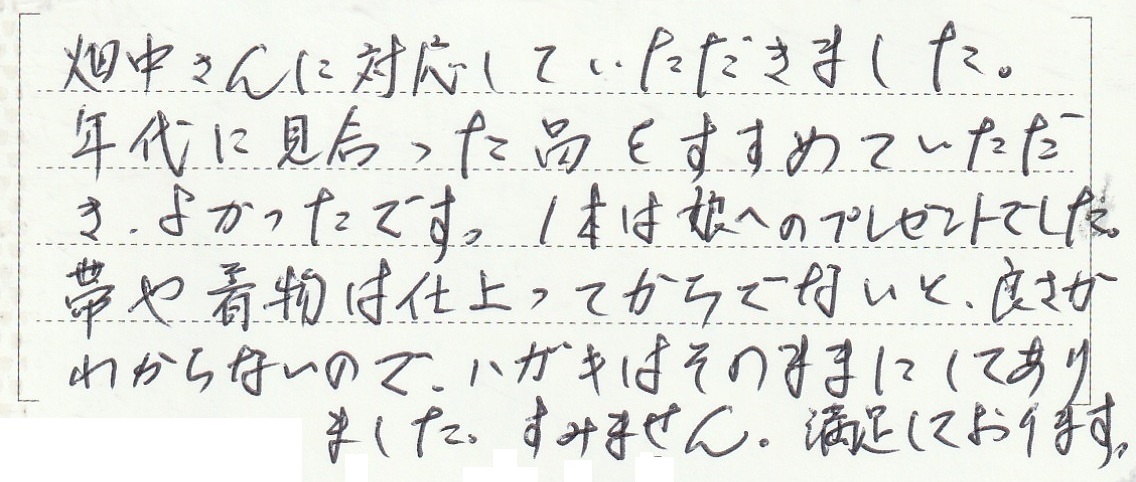 畑中さんに対応していただきました。
年代に見合った品をすすめていただ
き、よかったです。1本は娘へのプレゼントでした。
帯や着物は仕上ってからでないと、良さが
わからないので、ハガキはそのままにしてあり
ました。すみません。満足しております。